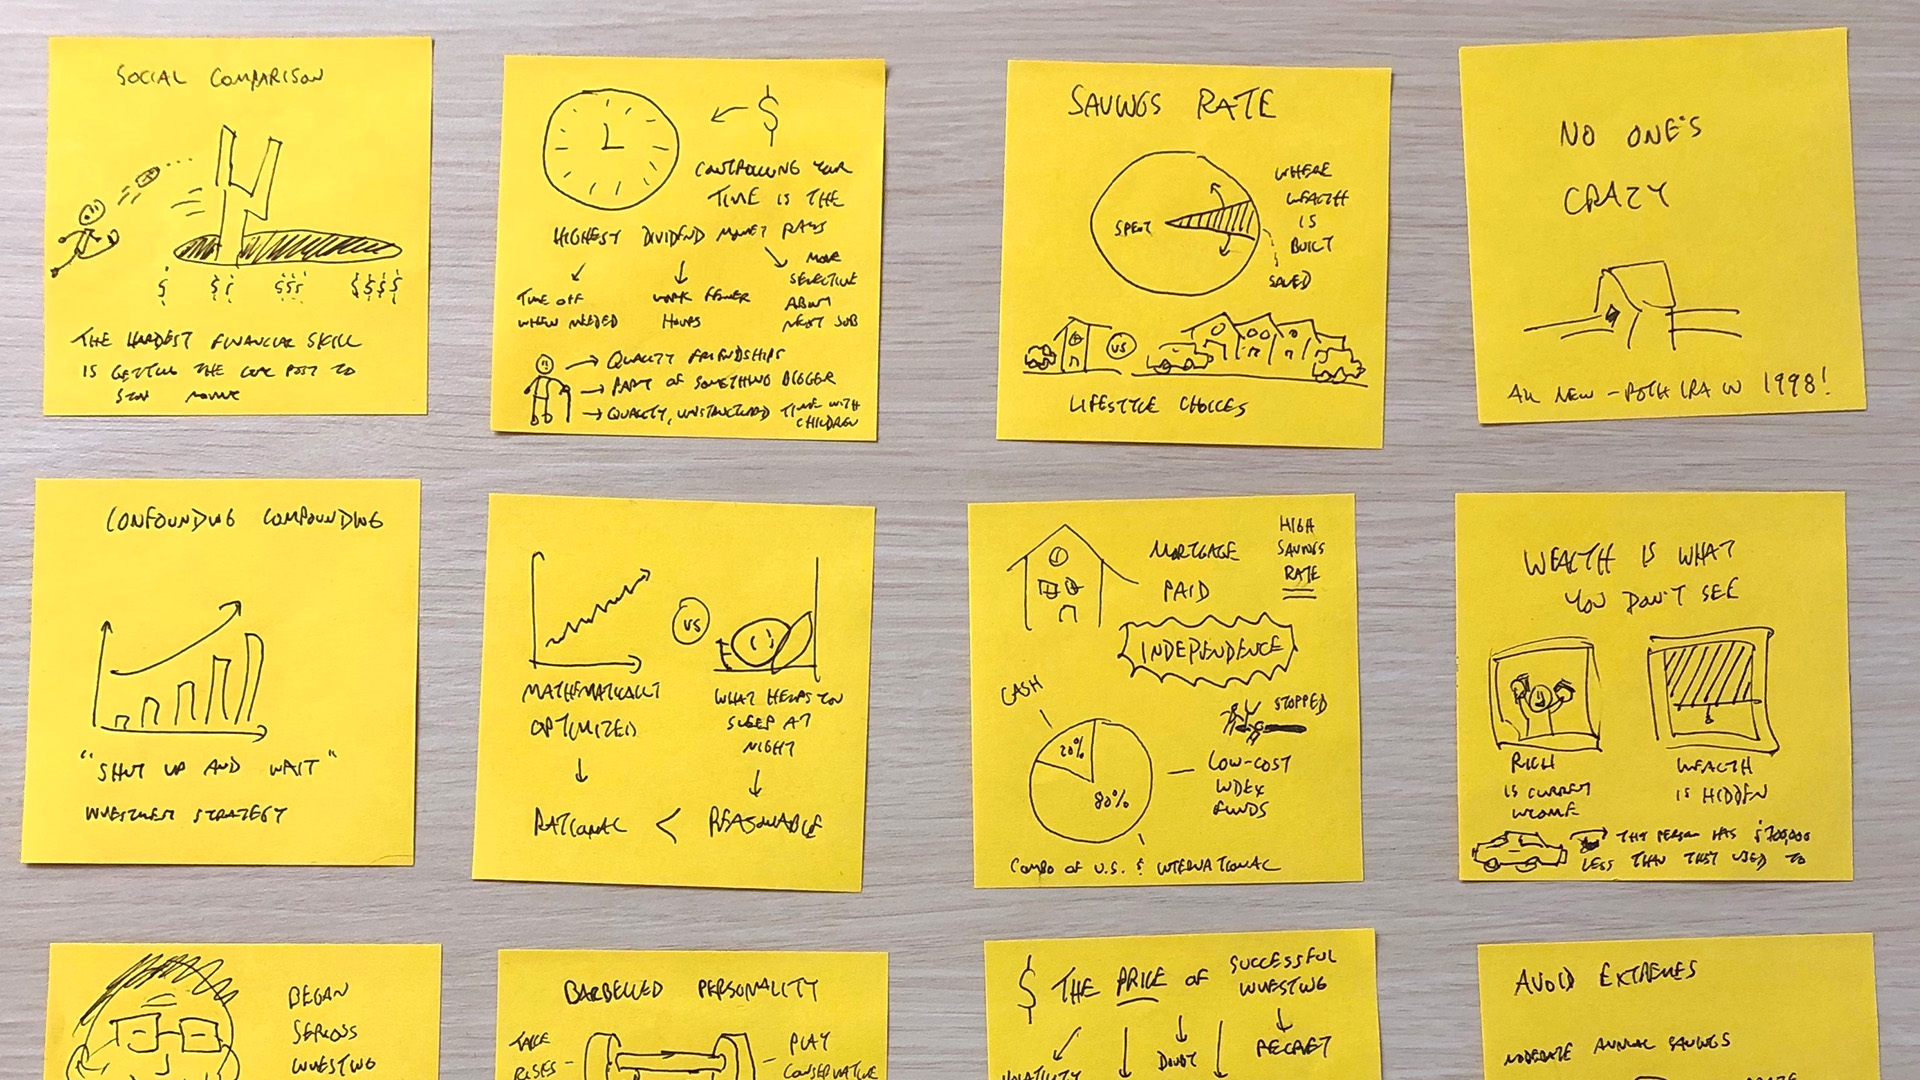 SOCIAL COMPARISON
$ $$ $$$ $$$$
THE HARDEST FINANCIAL SKILL
IS GETTING THE GOAL POST TO
STOP MOVING
$
CONTROLLING YOUR
TIME IS THE
HIGHEST DIVIDEND MONEY PAYS
TIME OFF
WHEN NEEDED
WORK FEWER
HOURS
MORE
SELECTIVE
ABOUT
NEXT JOB
QUALITY FRIENDSHIPS
PART OF SOMETHING BIGGER
QUALITY, UNSTRUCTURED TIME WITH
CHILDREN
SAVINGS RATE
SPENT
WHERE
WEALTH
IS
BUILT
SAVED
VS
LIFESTYLE CHOICES
NO ONE'S
CRAZY
ALL NEW - ROTH IRA IN 1998!
CONFOUNDING COMPOUNDING
"SHUT UP AND WAIT"
INVESTMENT STRATEGY
VS
MATHEMATICALLY
OPTIMIZED
WHAT HELPS YOU
SLEEP AT
NIGHT
RATIONAL < REASONABLE
MORTGAGE
PAID
HIGH
SAVINGS
RATE
INDEPENDENCE
CASH
20%
80%
STOPPED
LOW-COST
INDEX
FUNDS
COMBO OF U.S. & INTERNATIONAL
WEALTH IS WHAT
YOU DON'T SEE
RICH
IS CURRENT
INCOME
WEALTH
IS HIDDEN
THIS PERSON HAS $700,000
LESS THAN THEY USED TO
BEGAN
SERIOUS
INVESTING
BARBELLED PERSONALITY
TAKE
RISKS
PLAY
CONSERVATIVE
$ THE PRICE OF SUCCESSFUL
INVESTING
VOLATILITY
DOUBT
REGRET
AVOID EXTREMES
MODERATE ANNUAL SAVINGS